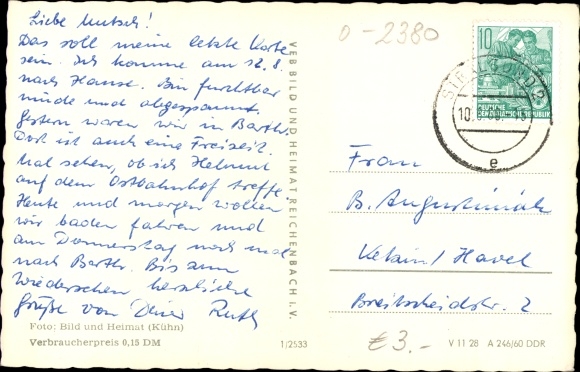 Liebe Mutsch!
Das soll meine letzte Karte
sein. Ich komme am 12.8.
nach Hause. Bin furchtbar
müde und abgespannt.
Gestern waren wir in Barth.
Dort ist auch eine Freizeit.
Mal sehen, ob ich Helmut
auf dem Ostbahnhof treffe.
Heute und morgen wollen
wir baden fahren und
am Donnerstag noch mal
nach Barth. Bis zum
Wiedersehen herzliche
Grüße von Deiner Ruth
Foto: Bild und Heimat (Kühn)
Verbraucherpreis 0,15 DM
1/2533
VEB BILD UND HEIMAT REICHENBACH I. V.
0-2380
10
DEUTSCHE
DEMOKRATISCHE REPUBLIK
STRALSUND 2
e
Frau
B. Augustiniak
Ketzin/Havel
Breitscheidstr. 2
€ 3.-
V 11 28 A 246/60 DDR